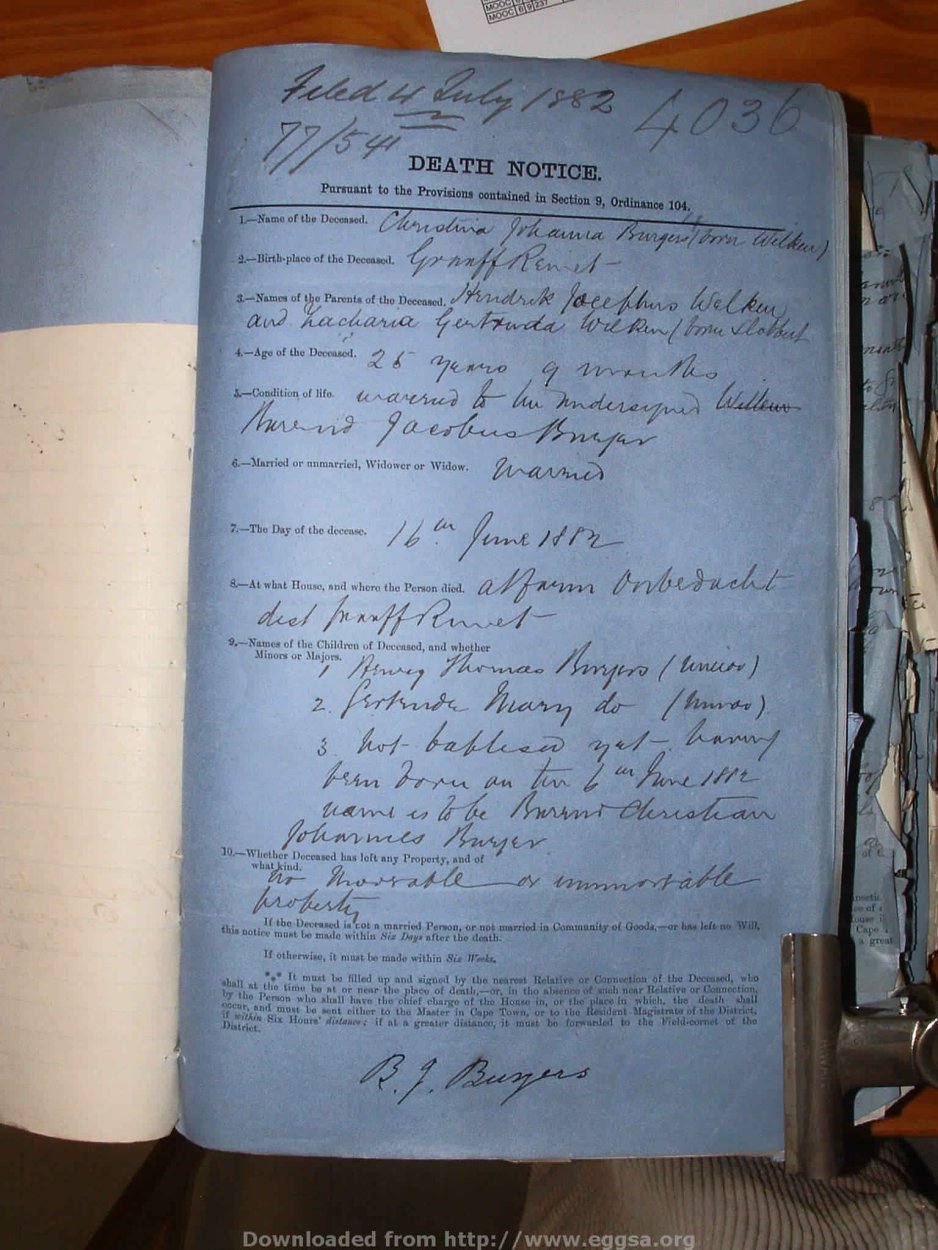 MOOC 6 9 237
Filed 4 July 1882 4036
77/541
DEATH NOTICE.
Pursuant to the Provisions contained in Section 9, Ordinance 104.
1.—Name of the Deceased. Christina Johanna Burgers (born Wilken)
2.—Birth-place of the Deceased. Graaff Reinet
3.—Names of the Parents of the Deceased. Hendrik Josephus Welken
and Zacharia Gertruida Wilken (born Slabbert
4.—Age of the Deceased. 25 years 9 months
5.—Condition of life. married to the undersigned
Barend Jacobus Burger
6.—Married or unmarried, Widower or Widow. Married
7.—The Day of the decease. 16th June 1882
8.—At what House, and where the Person died. at farm Onbedacht
dist Graaff Reinet
9.—Names of the Children of Deceased, and whether
Minors or Majors.
1 Thomas Burgers (minor)
2. Gertruida Mary do (minor)
3 not babtised yet having
been born on the 6th June 1882
name is to be Barend Christian
Johannes Burger
10.—Whether Deceased has left any Property, and of
what kind.
no moovable or immovable
property
If the Deceased is not a married Person, or not married in Community of Goods,—or has left no Will,
this notice must be made within Six Days after the death.
If otherwise, it must be made within Six Weeks.
*** It must be filled up and signed by the nearest Relative or Connection of the Deceased, who
shall at the time be at or near the place of death,—or, in the absence of such near Relative or Connection,
by the Person who shall have the chief charge of the House in, or the place in which, the death shall
occur, and must be sent either to the Master in Cape Town, or to the Resident Magistrate of the District,
if within Six Hours' distance; if at a greater distance, it must be forwarded to the Field-cornet of the
District.
B. J. Burgers
Downloaded from http://www.eggsa.org